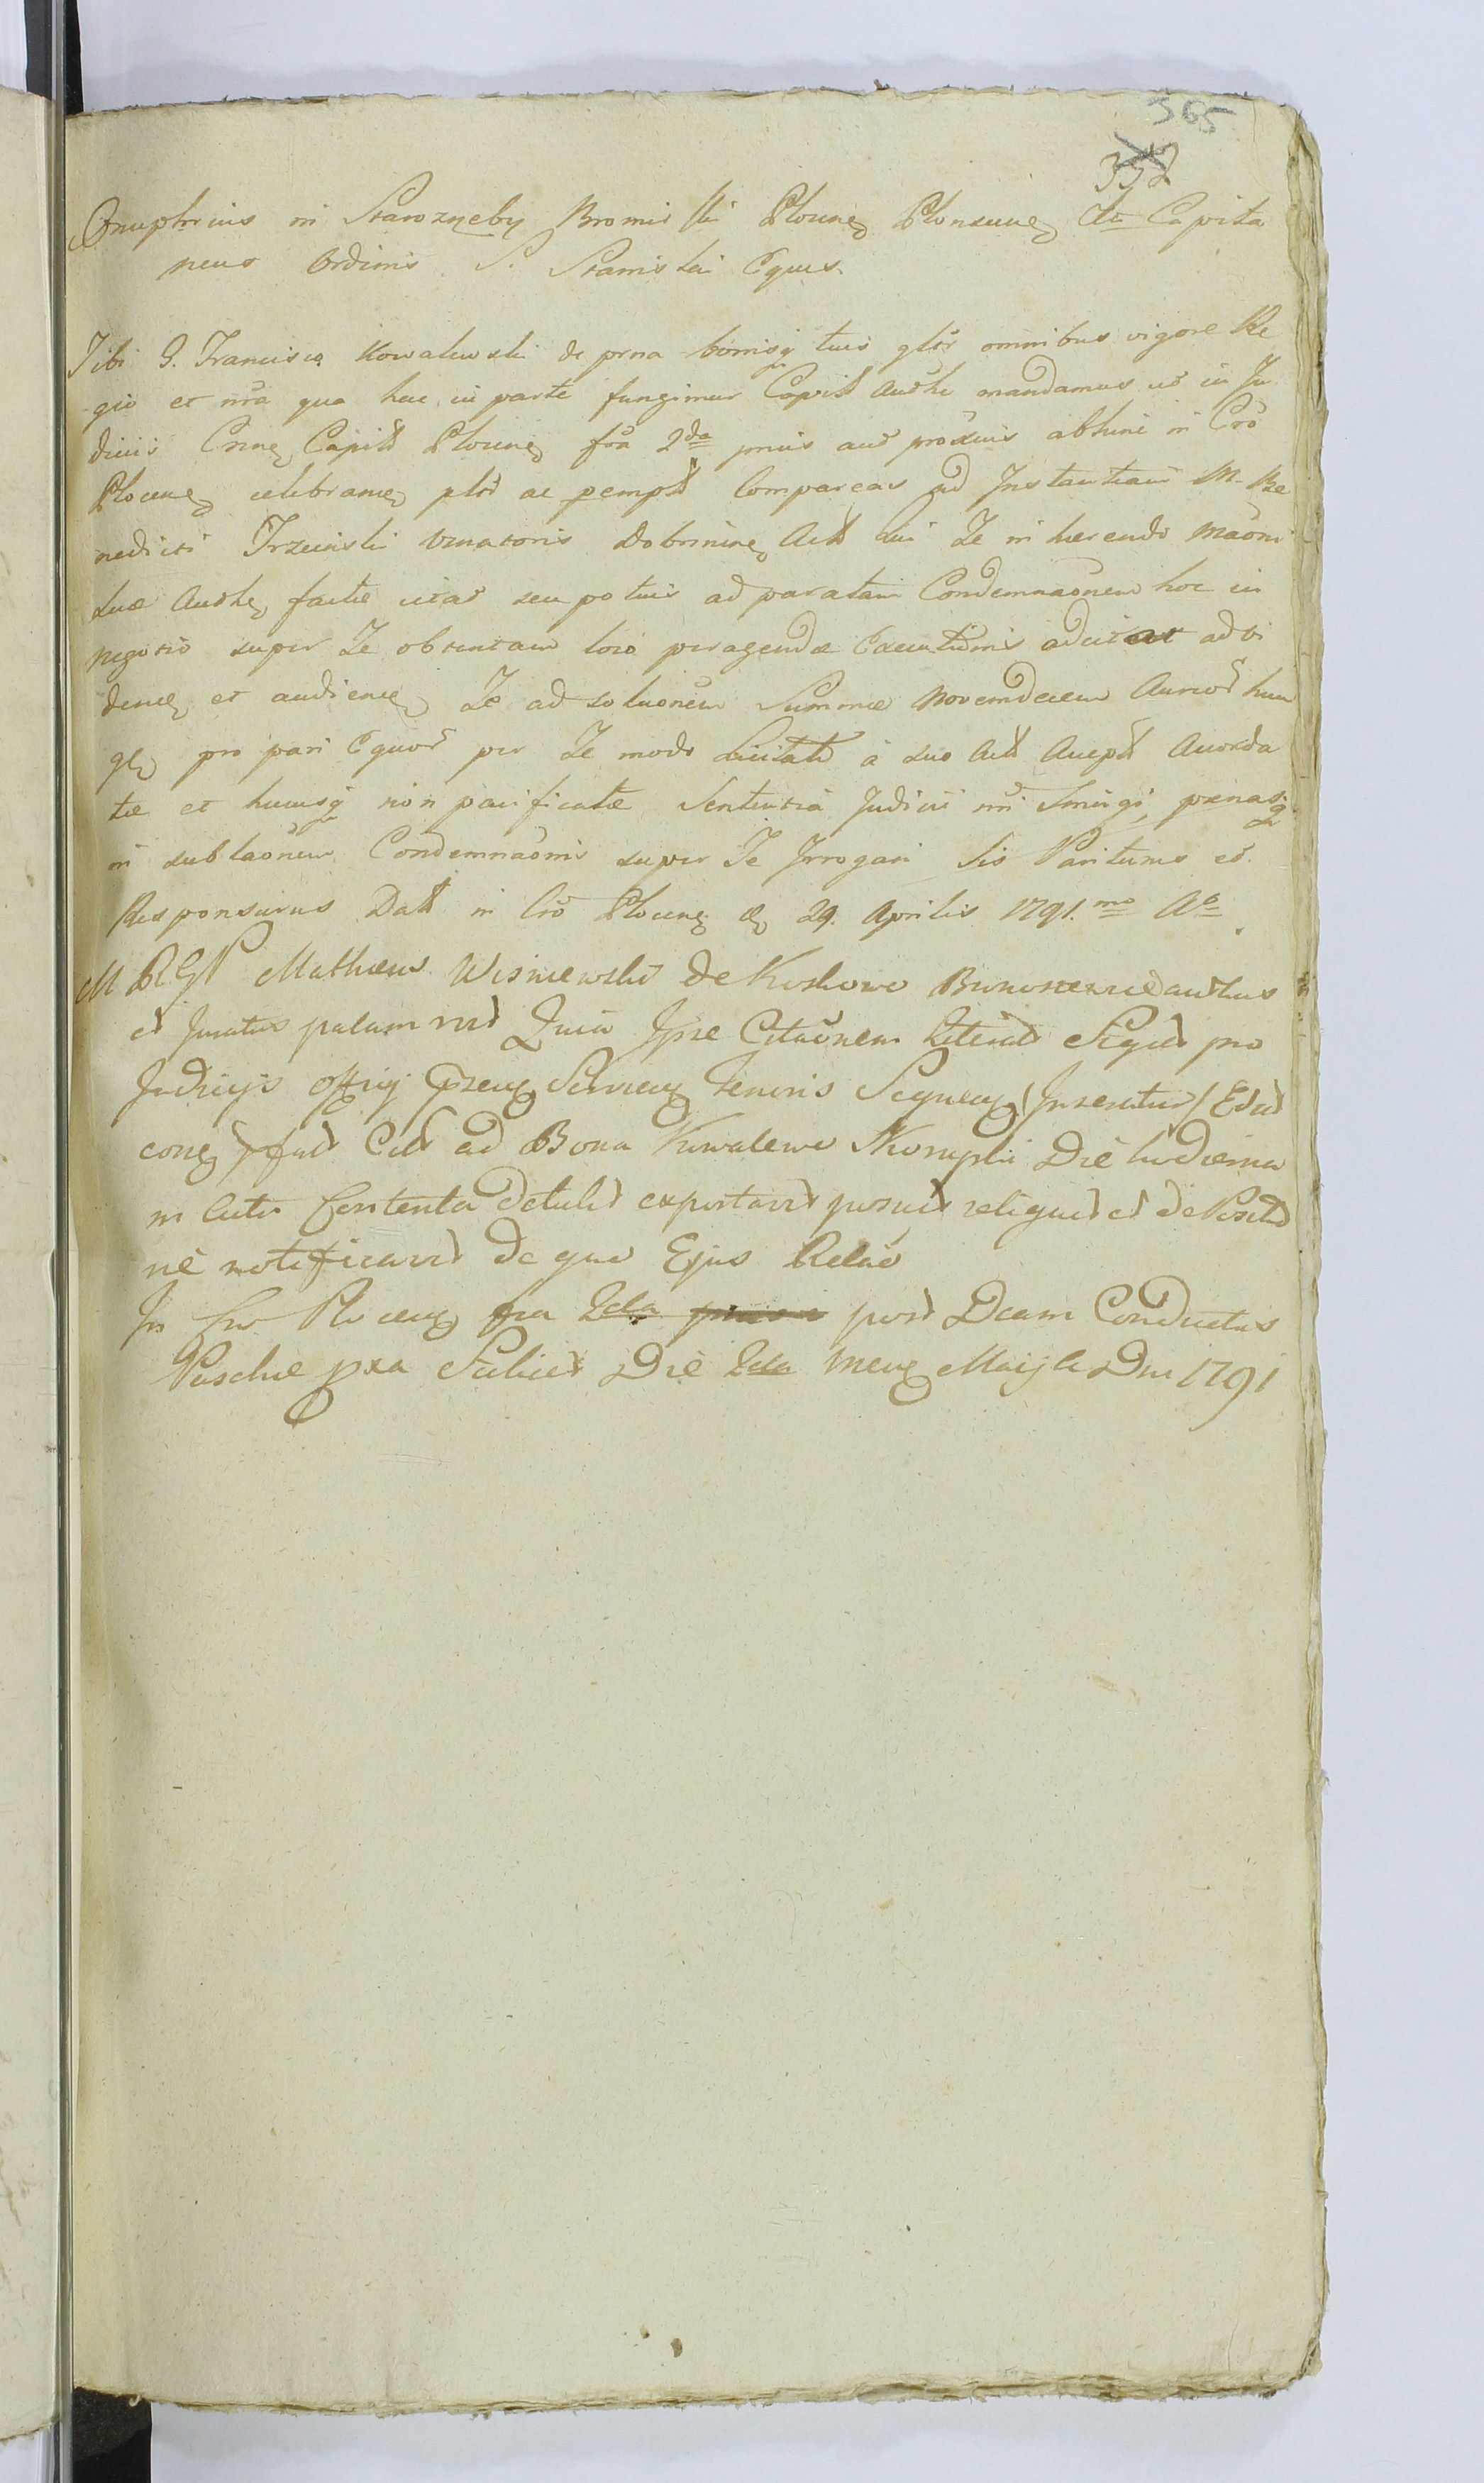 365
352
Onuphrius in Starozyeby Bromirski Plocens Plonscens etc Capita
neus Ordinis S. Stanislai Eques.
Tibi G. Francisco Kowalewski de psna bonisq tuis gltr omnibus vigore Re
gio et nra qua hac in parte fungimur Capitli authe mandamus ut in Ju
diciis Cnens Capitli Plocens fra 2da pmis aut proximis abhinc in Cro
Plocens celebrans pltr ac pempt Compareas ad Instantiam M. Be
nedicti Trzcinski Venatoris Dobrinens Act qui Te in herendo maoni
suæ Authe factæ citat seu potius ad paratam Condemnaonem hoc in
negotio super Te obtentam loco peragendæ Executionis adcitat ad vi
dend et audiend Te ad soluonem Summæ Novemdecem Aureor hun
gl pro pari Equor per Te modo Licitato à suo Act Accept Accorda
tæ et hucusq non pacificatæ Sententiâ Judicii nri Smingi, pænasq
in sublaonem Condemnaonis super Te Irrogari Sis Pariturus et
Responsurus Dat in Cro Plocens d 29. Aprilis 1791.mo Ao.
M RGP Mathæus Wisniewski de Koskowo authus
et Juratus palam rec Quia Ipse Citaonem Literat Sigil pro
Judicijs offij tenoris Sequens (Inseritur) Et
Cit ad Bona Kowalewo Skorupki Die hodierna
in Contenta detulit exportavit posuit reliquit et de Posito
nè notificavit de quo Ejus Relao
In Cro Plocens fra 2da post Dcam Conductus
Paschæ pxa Scilicet Die 2da Mens Maij A Dni 1791